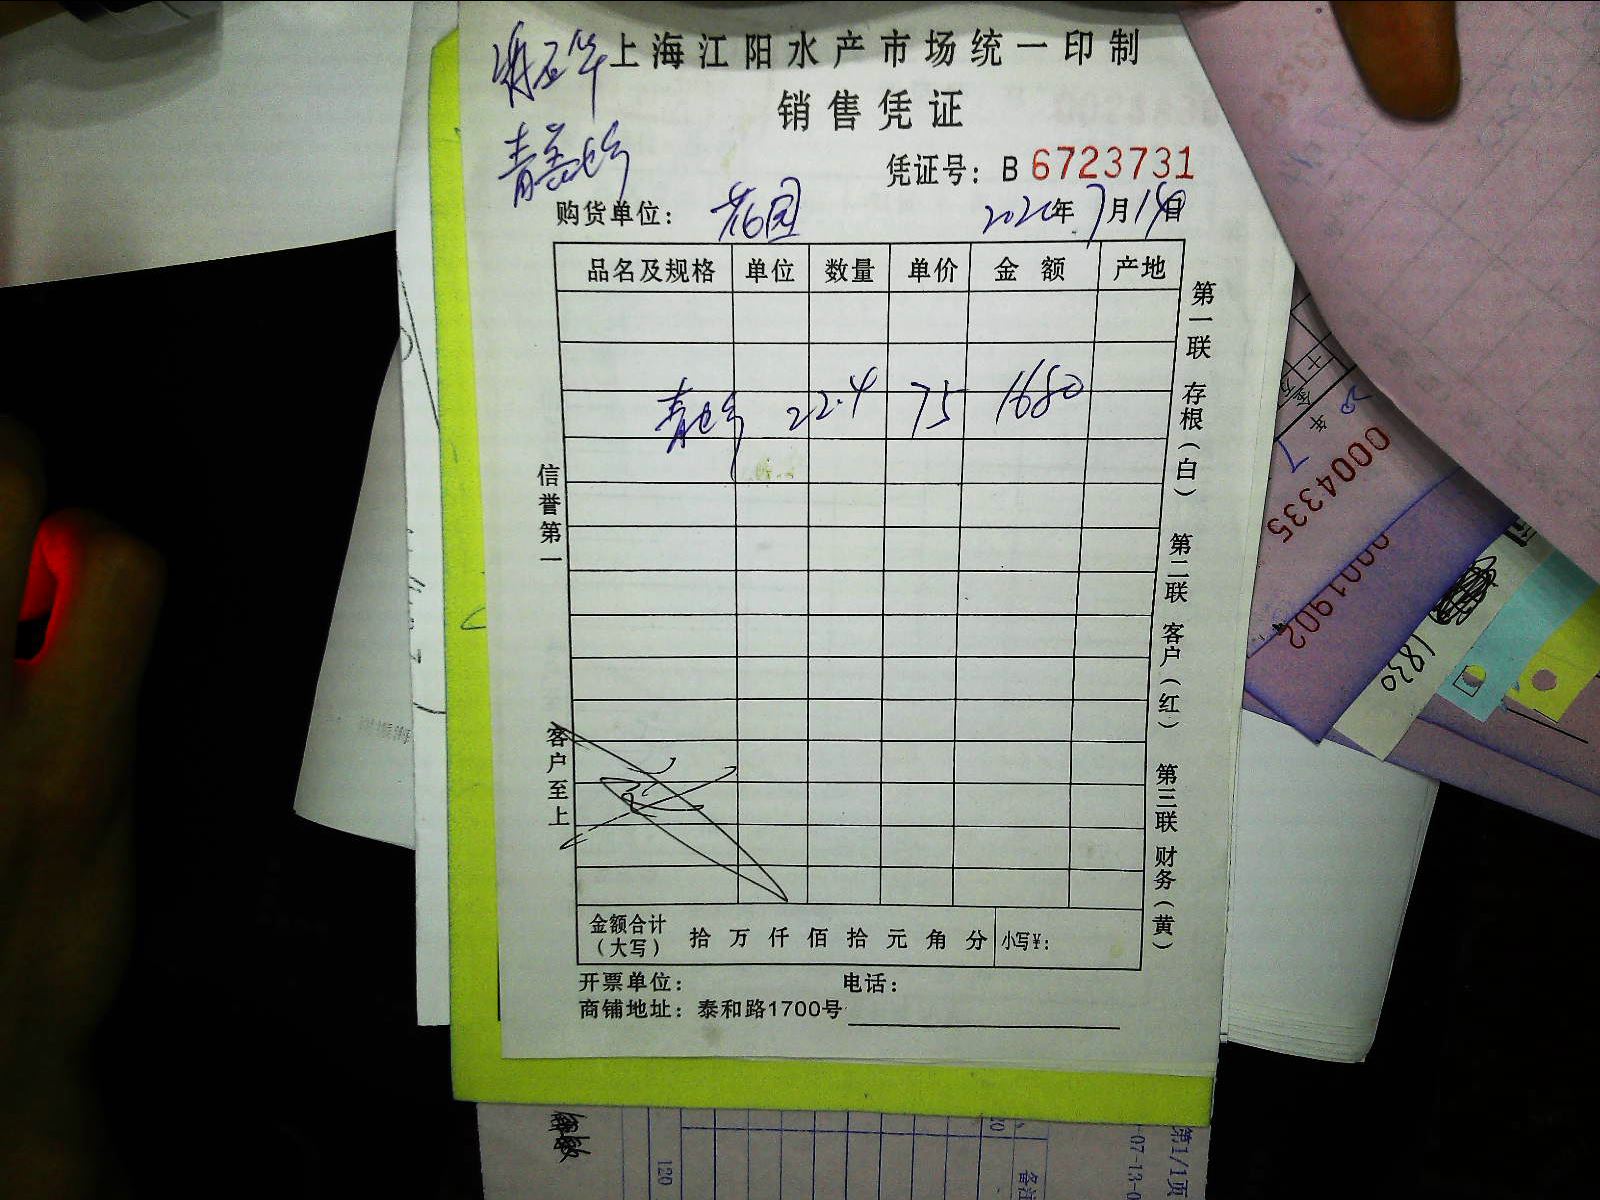 上海江阳水产市场统一印制
销售凭证
凭证号：B 6723731
购货单位：花园
年7月14日
品名及规格 单位 数量 单价 金额 产地
22.4 75 1680
信誉第一
客户至上
第一联 存根（白） 第二联 客户（红） 第三联 财务（黄）
金额合计（大写） 拾万仟佰拾元角分 小写¥：
开票单位： 电话：
商铺地址：泰和路1700号
0004335
0001902
1830
120
第1/1页
-07-13-0
备注